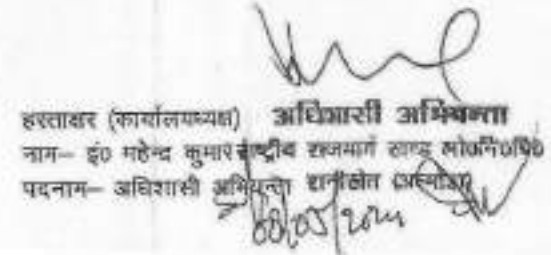 हस्ताक्षर (कार्यालयध्यक्ष) अधिशासी अभियन्ता
नाम– इं0 महेन्द्र कुमार राष्ट्रीय राजमार्ग खण्ड लो0नि0वि0
पदनाम– अधिशासी अभियन्ता रानीखेत (अल्मोड़ा)